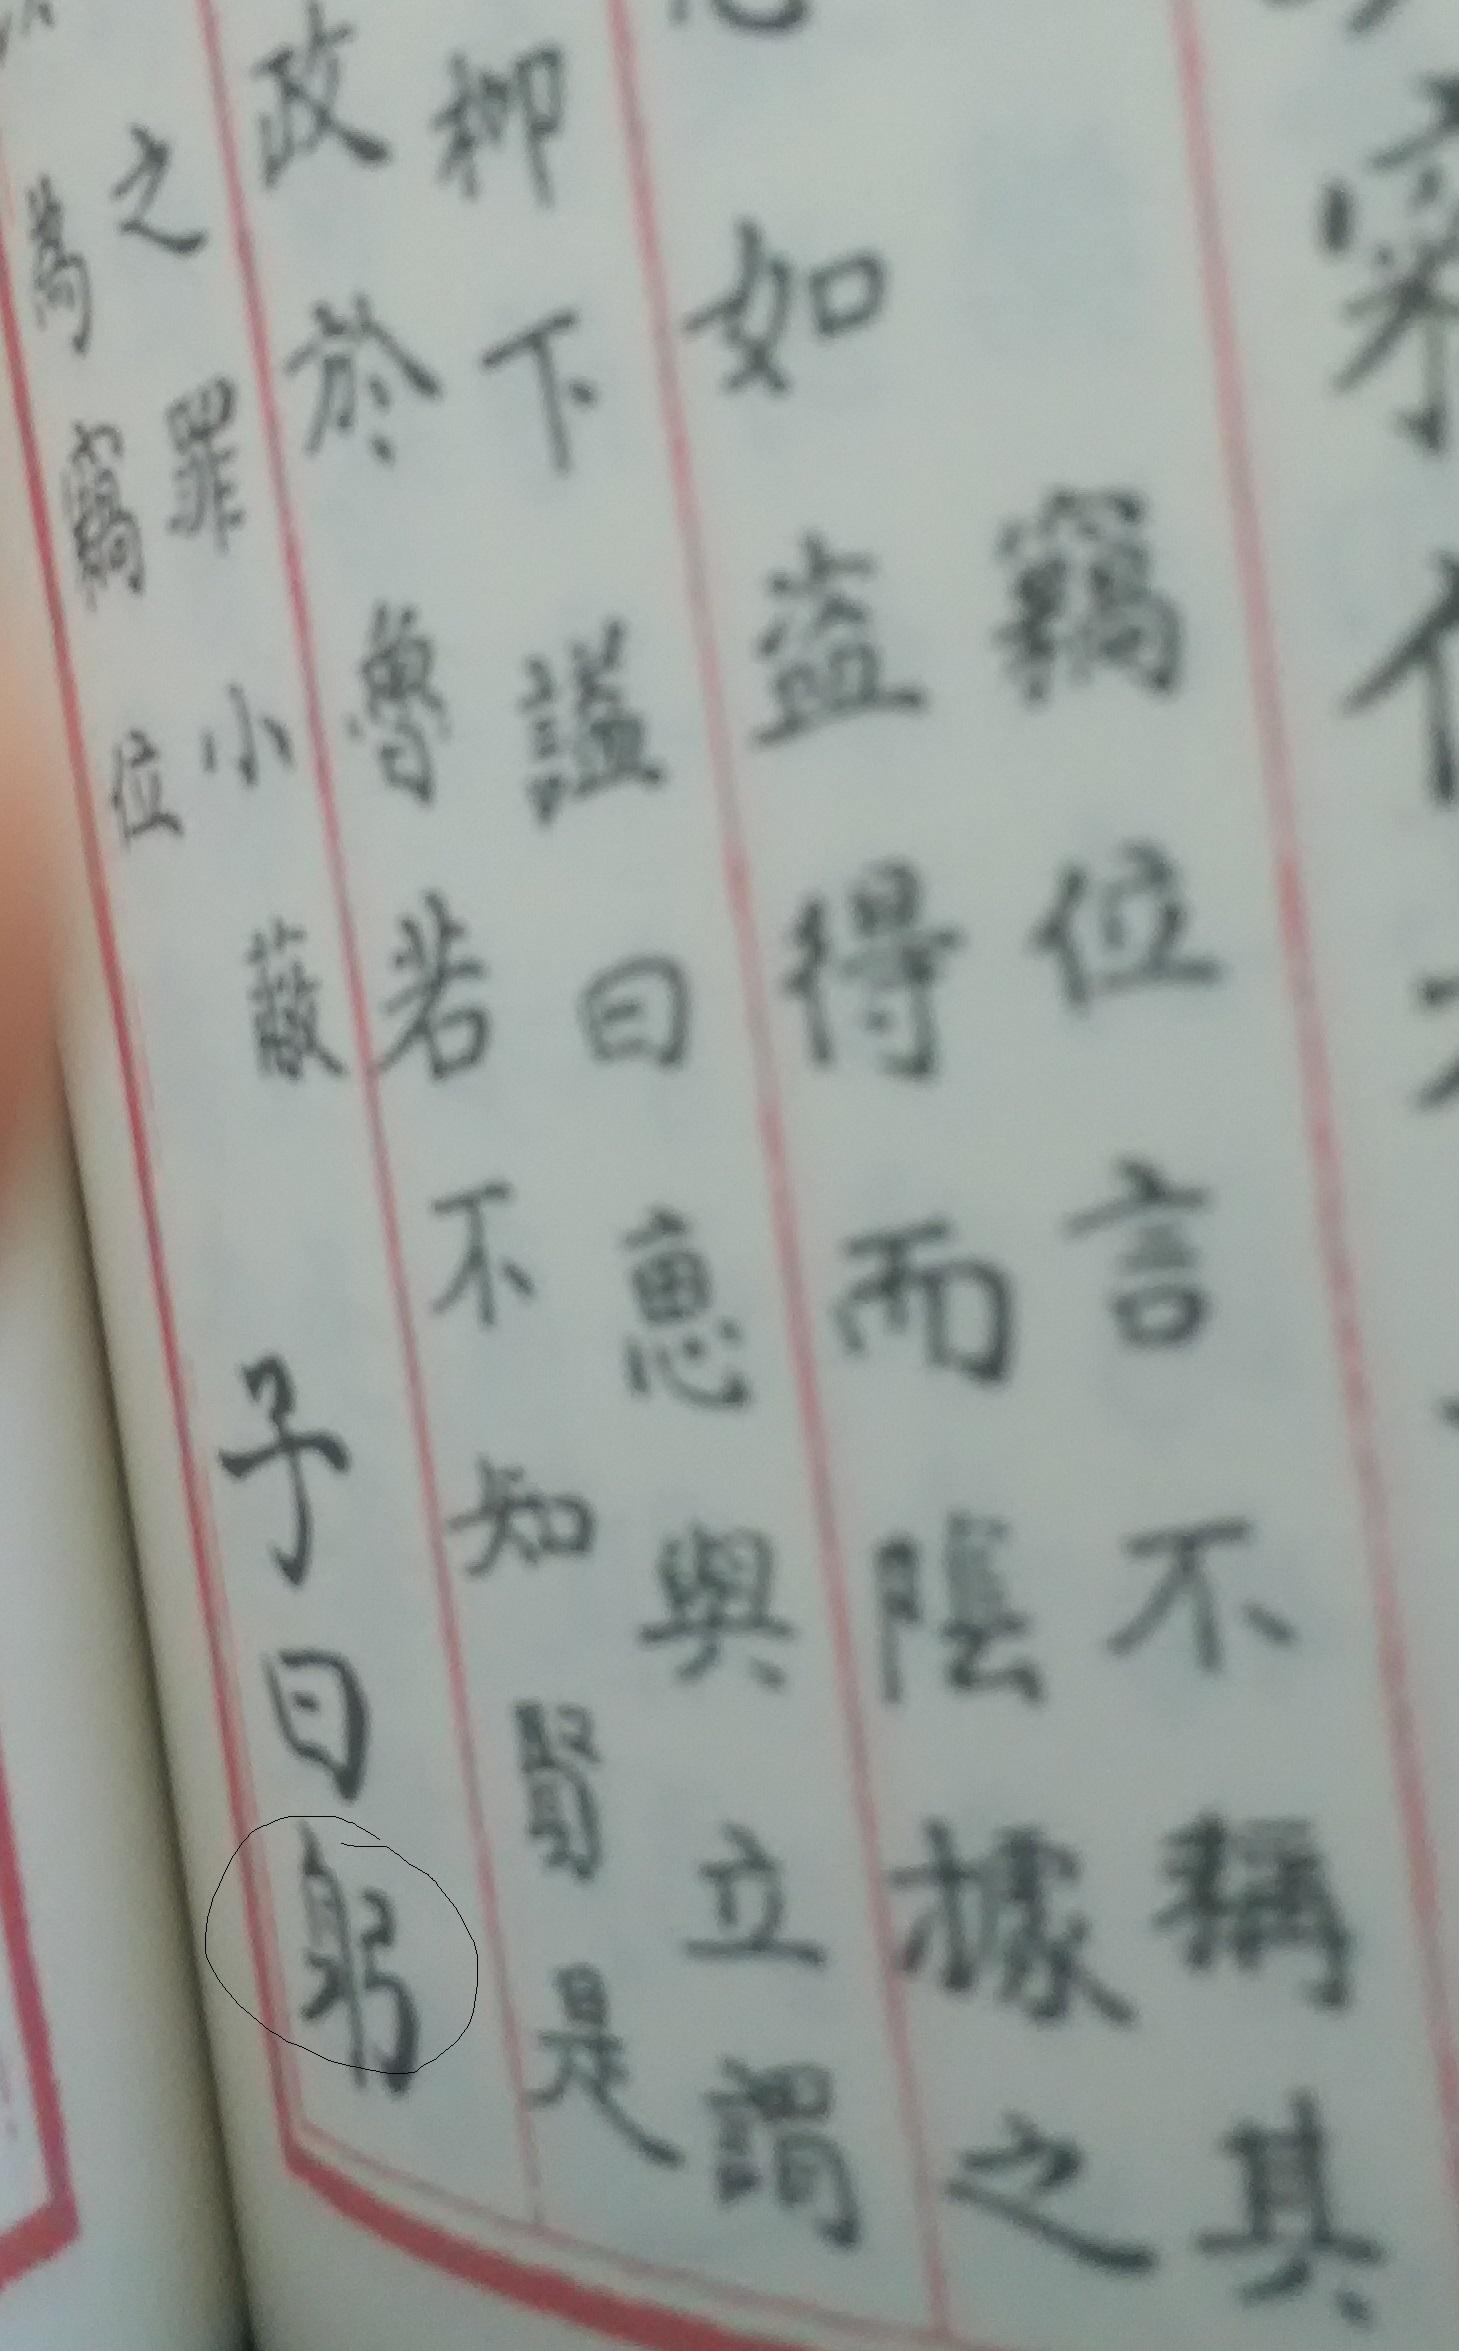 竊位言不稱其
如盜得而陰據之
柳下謚曰惠與立謂
政於魯若不知賢是
之罪小蔽
為竊位
子曰躬